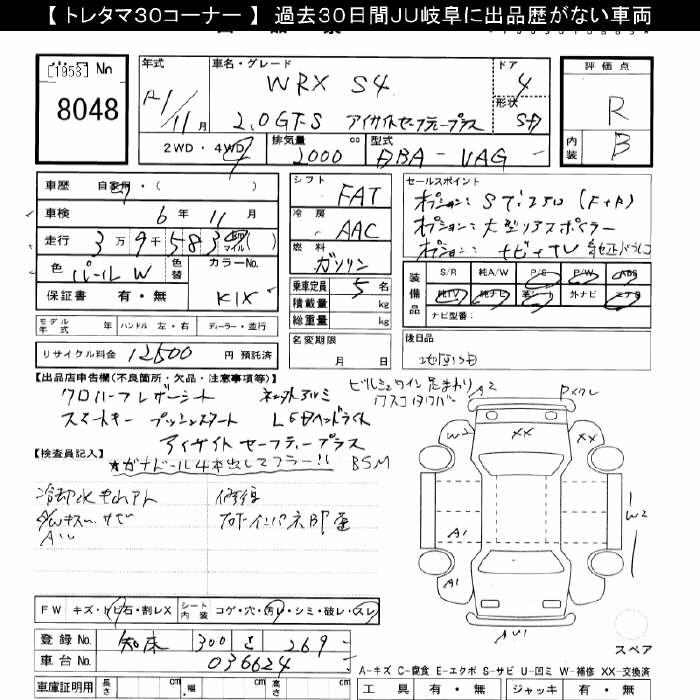 【 トレタマ30コーナー 】 過去30日間JU岐阜に出品歴がない車両
[1953] No
8048
年式
車名・グレード
ドア
評価点
R1/11月
WRX S4
4
形状
R
2.0GT-S アイサイトセーフティープラス
5D
2WD・4WD
排気量
cc
型式
内装
B
2000
DBA-VAG
車歴 自家用・( )
シフト
FAT
セールスポイント
車検 6年 11月
冷房
AAC
オプション: STi
(F+R)
走行 3万9千583 km マイル ( )
燃料
ガソリン
オプション: 大型リアスポイラー
オプション: ナビ+TV
色 パールW
色替
カラーNo.
K1X
乗車定員 5 名
装備品
S/R 純A/W P/S P/W ABS
保証書 有・無
積載量 kg
純TV 純ナビ 革シート 外ナビ エアB
総重量 kg
ナビ型番:
モデル年式 年
ハンドル 左・右
ディーラー・並行
名変期限
月 日
後日品
リサイクル料金 12500 円 預託済
【出品店申告欄(不良箇所・欠品・注意事項等)】
クロハーフレザーシート
スマートキー プッシュスタート LEDヘッドライト
アイサイトセーフティープラス
【検査員記入】
BSM
冷却水もれアト
修復
A2
W2
XX
XX
A1
W2
A1
AU1
FW キズ・トビ石・割レX
シート内装
コゲ・穴・汚レ・シミ・破レ・スレ
登録No. 300 さ 269
車台No. 036624
スペア
車庫証明用 長さ cm 幅 cm 高さ cm
A-キズ C-腐食 E-エクボ S-サビ U-凹ミ W-補修 XX-交換済
工具 有・無 ジャッキ 有・無